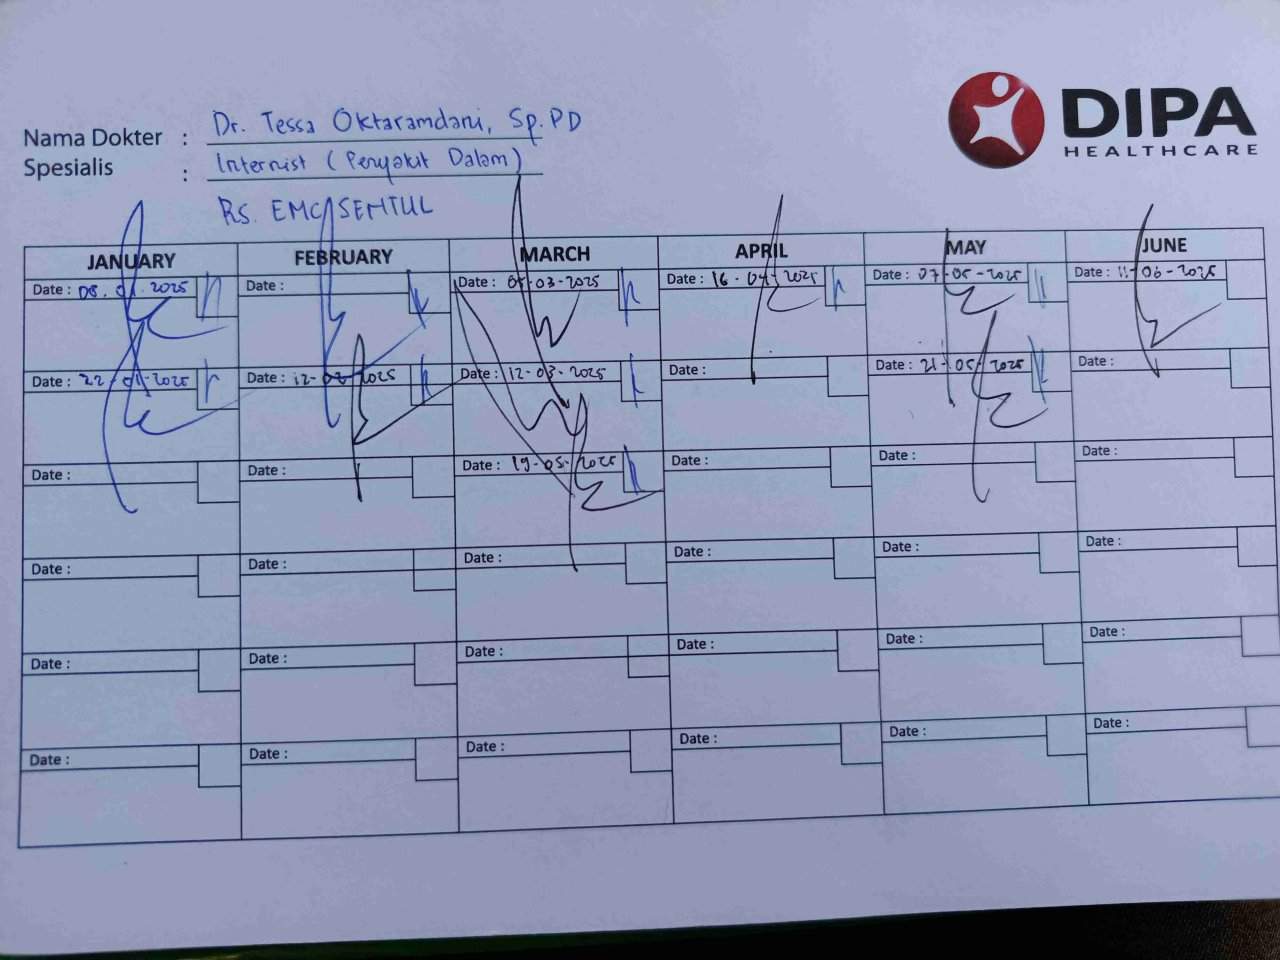 DIPA
HEALTHCARE
Nama Dokter : Dr. Tessa Oktaramdani, Sp.PD
Spesialis : Internist (Penyakit Dalam)
RS. EMC SENTUL
JANUARY FEBRUARY MARCH APRIL MAY JUNE
Date : 08.01.2025 Date : Date : 05-03-2025 Date : 16-04-2025 Date : 07-05-2025 Date : 11-06-2025
Date : 22-01-2025 Date : 12-02-2025 Date : 12-03-2025 Date : Date : 21-05-2025 Date :
Date : Date : Date : 19-03-2025 Date : Date : Date :
Date : Date : Date : Date : Date : Date :
Date : Date : Date : Date : Date : Date :
Date : Date : Date : Date : Date : Date :